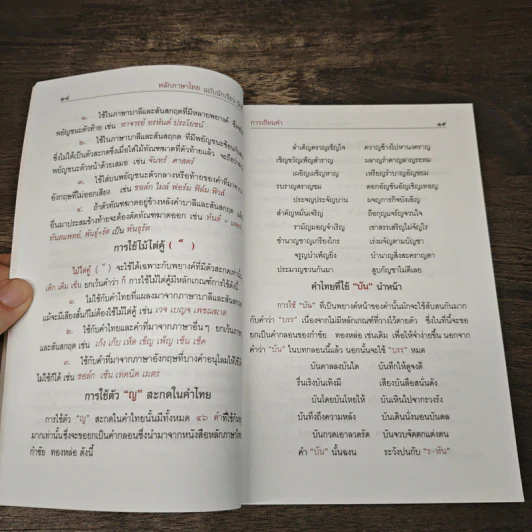 ๑๘ หลักภาษาไทย ฉบับนักเรียน
๑. ใช้ในภาษาบาลีและสันสกฤตที่มีหลายพยางค์
พยัญชนะตัวท้าย เช่น อาจารย์ อรหันต์ ประโยชน์
๒. ใช้ในภาษาบาลีและสันสกฤต ที่มีพยัญชนะซ้อน
ซึ่งไม่ได้เป็นตัวสะกดซึ่งเมื่อใส่ไม้ทัณฑฆาตที่ตัวท้ายแล้ว
พยัญชนะตัวหน้าด้วยเสมอ เช่น จันทร์ ศาสตร์
๓. ใช้ใส่บนพยัญชนะตัวกลางหรือท้ายของคำที่มาจาก
อังกฤษที่ไม่ออกเสียง เช่น ชอล์ก ไมล์ ฟอร์ม ฟิล์ม ฟิวส์
๔. ถ้าตัวทัณฑฆาตอยู่ข้างหลังคำบาลีและสันสกฤต
อื่นมาประสมข้างท้ายจะต้องตัดทัณฑฆาตออก เช่น ทันต์ +
ทันตแพทย์, พันธุ์+รัก เป็น พันธุรัก
การใช้ไม้ไต่คู้ ( ็ )
ไม้ไต่คู้ ( ็ ) จะใช้ได้เฉพาะกับพยางค์ที่มีตัวสะกดเท่านั้น
เด็ก เค็ม เข็น ยกเว้นคำว่า ก็ การใช้ไม้ไต่คู้มีหลักเกณฑ์การใช้ดังนี้
๑. ไม่ใช้กับคำไทยที่แผลงมาจากภาษาบาลีและสันสกฤต
แม้จะมีเสียงสั้นก็ไม่ต้องใช้ไม้ไต่คู้ เช่น เวจ เบญจ เพชฌฆาต
๒. ใช้กับคำไทยและคำที่มาจากภาษาอื่นๆ ยกเว้น
และสันสกฤต เช่น เก้ง เก็บ เห็ด เช็ค เพ็ญ เซ็น เช็ด
๓. ใช้กับคำที่มาจากภาษาอังกฤษที่บางคำอนุโลมให้ใช้
ไม่ใช้ก็ได้ เช่น ชอล์ก เซ็น เทคนิค เมตร
การใช้ตัว "ญ" สะกดในคำไทย
การใช้ตัว "ญ" สะกดในคำไทยนั้นมีทั้งหมด ๔๖ คำที่ใช้
มากเท่านั้นซึ่งจะขอยกเป็นคำกลอนซึ่งนำมาจากหนังสือหลักภาษาไทย
กำชัย ทองหล่อ ดังนี้
การเขียนคำ ๑๙
ลำเค็ญครวญเข็ญใจ ควาญช้างไปหานงคราญ
เชิญขวัญเพ็ญสำราญ ผลาญรำคาญลาญระทม
เผอิญเผชิญหาญ เหรียญรำบาญอัญขยม
ราบราญสราญชม ดอกอัญชันอัญเชิญเทอญ
ประจญประจัญบาน ผจญการกิจบังเอิญ
สำคัญหมั่นเจริญ ถือกุญแจรัญจวนใจ
รามัญมอญจำเริญ เขาสรรเสริญไม่จัญไร
ชำนาญชาญเกรียงไกร เร่งผจัญตามบัญชา
จรูญบำเพ็ญยิ่ง บำนาญสิ่งสะคราญตา
ประมวญชวนกันมา สูบกัญชาไม่ดีเลย
คำไทยที่ใช้ "บัน" นำหน้า
การใช้ "บัน" ที่เป็นพยางค์หน้าของคำนั้นมักจะใช้สับสนกันมาก
กับคำว่า "บรร" เนื่องจากไม่มีกฎเกณฑ์ที่วางไว้ตายตัว ซึ่งในที่นี้จะขอ
ยกเป็นคำกลอนของกำชัย ทองหล่อ เช่นเดิม เพื่อให้จำง่ายขึ้น นอกจาก
คำว่า "บัน" ในบทกลอนนี้แล้ว นอกนั้นจะใช้ "บรร" หมด
บันดาลลงบันได บันทึกให้ดูจงดี
รื่นเริงบันเทิงมี เสียงบันลือสนั่นดัง
บันโดยบันโหยไห้ บันเหินไปจากรวงรัง
บันทึงถึงความหลัง บันเดินนั่งนอนบันดล
บันกวดเอาลวดรัด บันจวบจัดตกแต่งตน
คำ "บัน" นั้นฉงน ระวังปนกับ "ร-หัน"